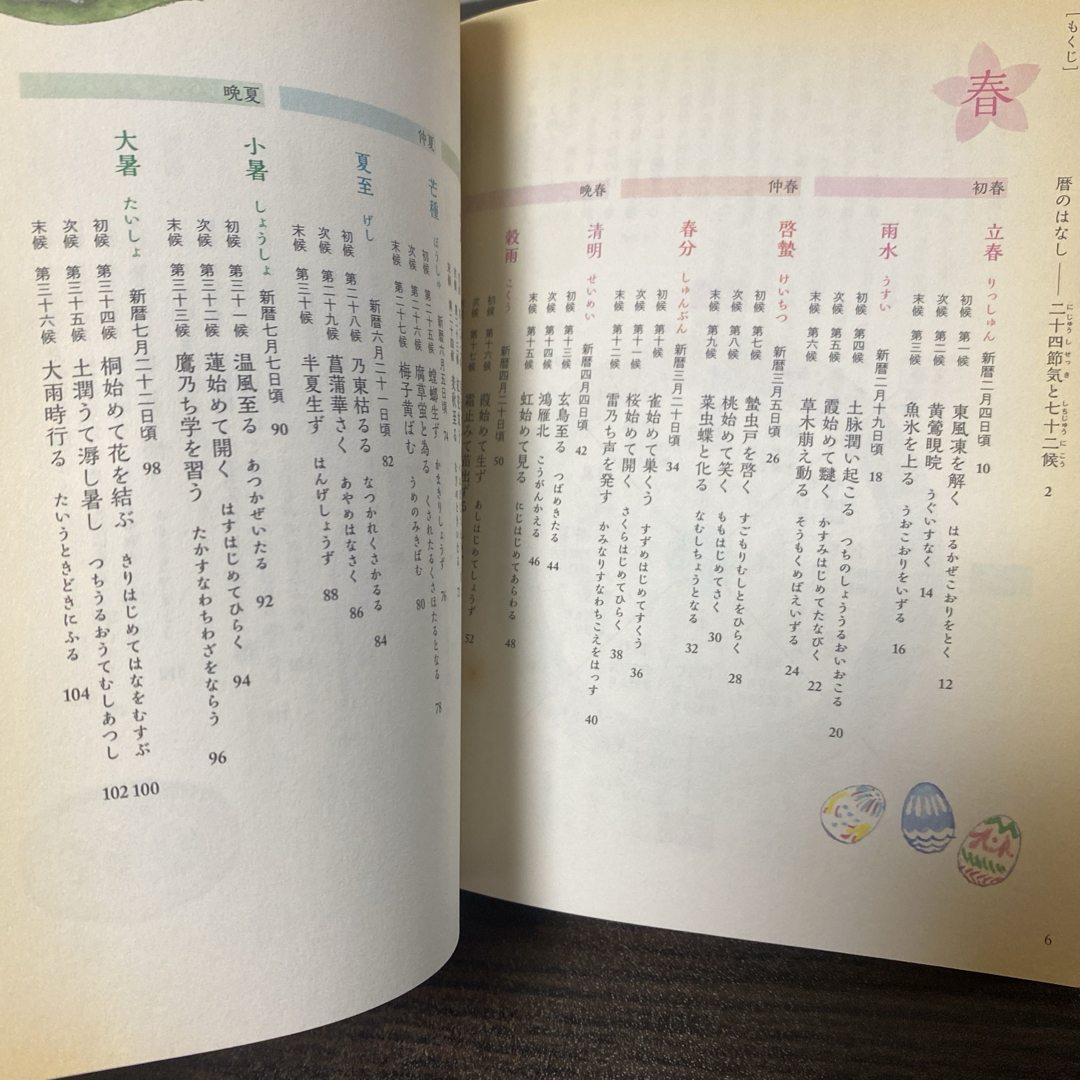 [もくじ]
暦のはなし――二十四節気と七十二候 2
にじゅうしせっき
しちじゅうにこう
春
初春
立春 りっしゅん 新暦二月四日頃 10
初候 第一候 東風凍を解く はるかぜこおりをとく 12
次候 第二候 黄鶯睍睆 うぐいすなく 14
末候 第三候 魚氷を上る うおこおりをいずる 16
雨水 うすい 新暦二月十九日頃 18
初候 第四候 土脉潤い起こる つちのしょううるおいおこる 20
次候 第五候 霞始めて靆く かすみはじめてたなびく 22
末候 第六候 草木萌え動る そうもくめばえいずる 24
仲春
啓蟄 けいちつ 新暦三月五日頃 26
初候 第七候 蟄虫戸を啓く すごもりむしとをひらく 28
次候 第八候 桃始めて笑く ももはじめてさく 30
末候 第九候 菜虫蝶と化る なむしちょうとなる 32
春分 しゅんぶん 新暦三月二十日頃 34
初候 第十候 雀始めて巣くう すずめはじめてすくう 36
次候 第十一候 桜始めて開く さくらはじめてひらく 38
末候 第十二候 雷乃ち声を発す かみなりすなわちこえをはっす 40
晩春
清明 せいめい 新暦四月四日頃 42
初候 第十三候 玄鳥至る つばめきたる 44
次候 第十四候 鴻雁北 こうがんかえる 46
末候 第十五候 虹始めて見る にじはじめてあらわる 48
穀雨 こくう 新暦四月二十日頃 50
初候 第十六候 葭始めて生ず あしはじめてしょうず 52
次候 第十七候 霜止みて苗出ずる
6
仲夏
芒種 ぼうしゅ 新暦六月五日頃 74
初候 第二十五候 螳螂生ず かまきりしょうず 76
次候 第二十六候 腐草蛍と為る くされたるくさほたるとなる 78
末候 第二十七候 梅子黄ばむ うめのみきばむ 80
夏至 げし 新暦六月二十一日頃 82
初候 第二十八候 乃東枯るる なつかれくさかるる 84
次候 第二十九候 菖蒲華さく あやめはなさく 86
末候 第三十候 半夏生ず はんげしょうず 88
晩夏
小暑 しょうしょ 新暦七月七日頃 90
初候 第三十一候 温風至る あつかぜいたる 92
次候 第三十二候 蓮始めて開く はすはじめてひらく 94
末候 第三十三候 鷹乃ち学を習う たかすなわちわざをならう 96
大暑 たいしょ 新暦七月二十二日頃 98
初候 第三十四候 桐始めて花を結ぶ きりはじめてはなをむすぶ 100
次候 第三十五候 土潤うて溽し暑し つちうるおうてむしあつし 102
末候 第三十六候 大雨時行る たいうときどきにふる 104